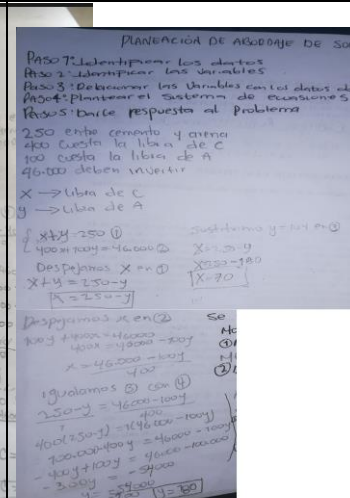 PLANEACIÓN DE ABORDAJE DE SO
PASO 1: Identificar los datos
PASO 2: Identificar las variables
PASO 3: Relacionar las variables con los datos
PASO 4: Plantear el sistema de ecuasiones
PASO 5: Darle respuesta al Problema
250 entre cemento y arena
400 cuesta la libra de C
100 cuesta la libra de A
46.000 deben invertir
X → Libra de C
y → Libra de A
X+y=250 ①
400x+100y=46.000 ②
Despejamos X en ①
X+y=250-y
X=250-y
X=70
Despejamos x en ②
100y+400x=46000
400x=46000-100y
x=46.000-100y
400
Igualamos ③ con ④
250-y = 46000-100y
400
400(250-y)=1(46000-100y)
100.000-400y=46000-100y
-400y+100y=46000-100.000
-300y=-54000
y= 
y=180
Se
①
②